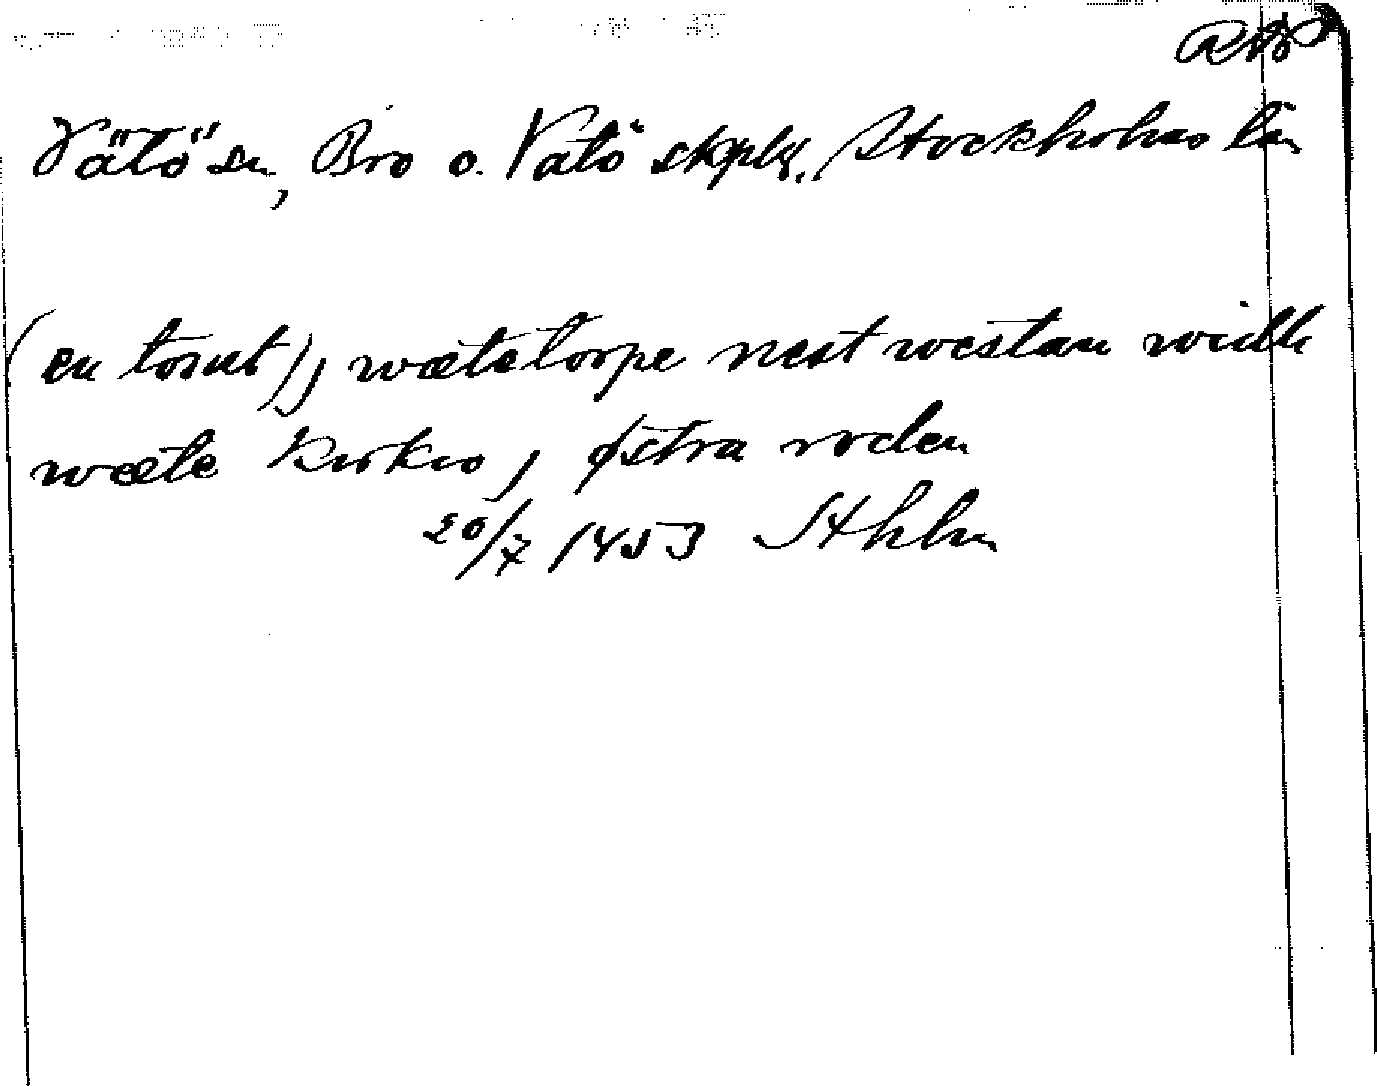 RAP
Vätö sn, Bro o. Vätö skplg. Stockholms län
(en tomt), wætetorpe nest westan widh
wæte kirkio, østra roden
20/7 1453 Sthlm